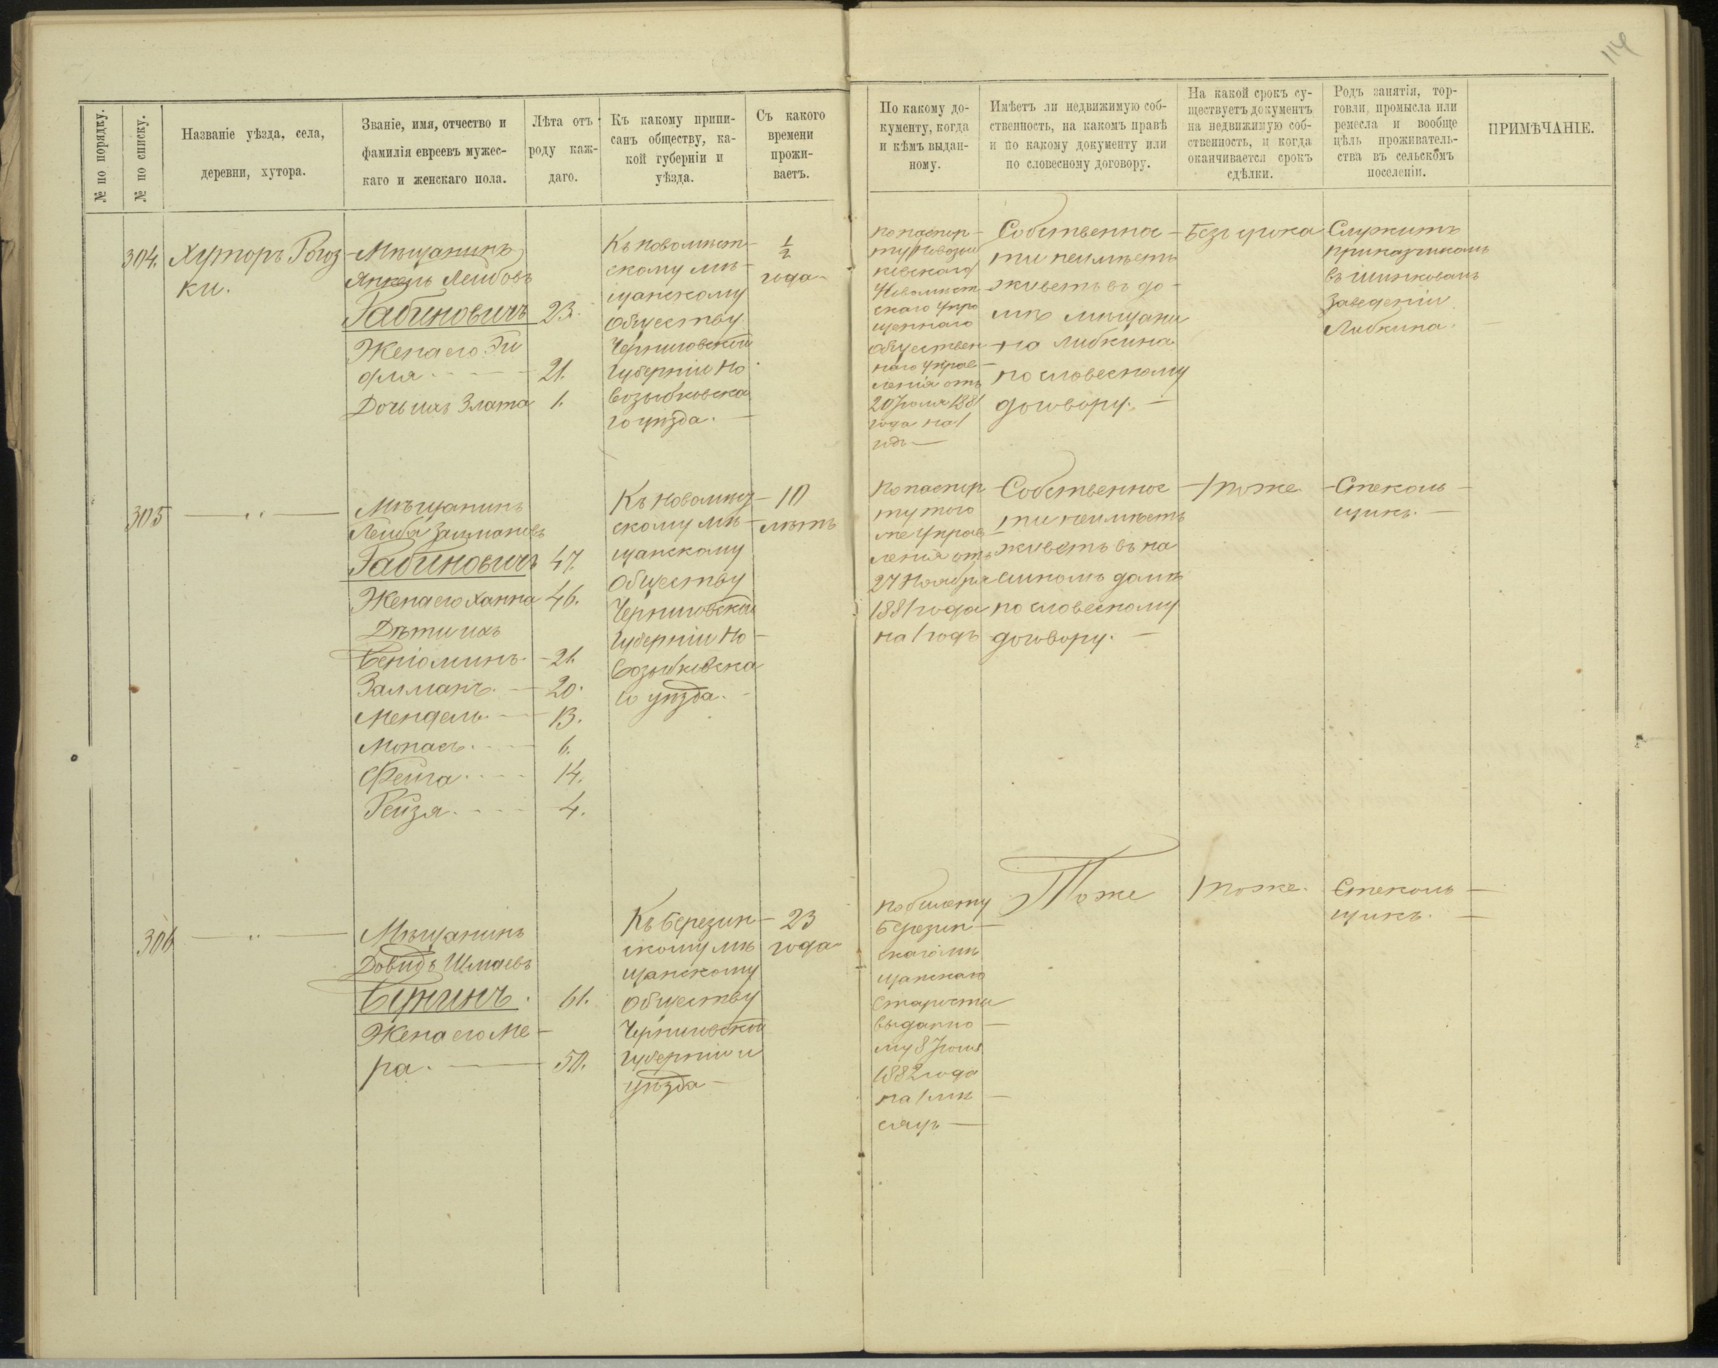 114
№ по порядку.
№ по списку.
Названіе уѣзда, села,
деревни, хутора.
Званіе, имя, отчество и
фамилія евреевъ мужес-
каго и женскаго пола.
Лѣта отъ
роду каж-
даго.
Къ какому припи-
санъ обществу, ка-
кой губерніи и
уѣзда.
Съ какого
времени
прожи-
ваетъ.
По какому до-
кументу, когда
и кѣмъ выдан-
ному.
Имѣетъ ли недвижимую соб-
ственность, на какомъ правѣ
и по какому документу или
по словесному договору.
На какой срокъ су-
ществуетъ документъ
на недвижимую соб-
ственность, и когда
оканчивается срокъ
сдѣлки.
Родъ занятія, тор-
говли, промысла или
ремесла и вообще
цѣль проживатель-
ства въ сельскомъ
поселеніи.
ПРИМѢЧАНІЕ.
304.
Хуторъ Рогоз-
ки.
Мѣщанинъ
Янкель Лейбовъ
Рабиновичъ 23.
Жена его
фля 21.
Дочь ихъ Злата 1.
Къ Новомѣст-
скому мѣ-
щанскому
обществу
Черниговской
губерніи Но-
возыбковска
го уѣзда.
1/2
года
По паспор-
ту Новозыб
ковскаго
Новомѣст
скаго упро
щеннаго
обществен
наго управ
ленія отъ
20 Іюля 1881
года на 1
годъ
Собственнос-
ти неимѣетъ
живетъ въ до-
мѣ мѣщани
на Либкина
по словесному
договору.
Безъ срока
Служитъ
прикащикомъ
въ шинковомъ
заведеніи
Либкина.
305
Мѣщанинъ
Лейба Залмановъ
Рабиновичъ 47.
Жена его Ханна 46.
Дѣти ихъ
Беніоминъ 21.
Залманъ 20.
Мендель 13.
Монасъ 6.
Фейга 14.
Рейзя 4.
Къ Новомѣст-
скому мѣ-
щанскому
обществу
Черниговской
губерніи Но-
возыбковска
го уѣзда.
10
лѣтъ
По паспор
ту того
же управ
ленія отъ
27 Ноября
1881 года
на 1 годъ
Собственнос-
ти неимѣетъ
живетъ въ на
емномъ домѣ
по словесному
договору.
тоже
Стеколь-
щикъ.
306
Мѣщанинъ
Довидъ Шмаевъ
61.
Жена его Ме-
ра. 50.
Къ Березин-
скому мѣ
щанскому
обществу
Черниговской
губерніи и
уѣзда
23
года
По билету
Березин-
скаго мѣ
щанскаго
старосты
выданно-
му 8 Іюня
1882 года
на 1 мѣ-
сяцъ
Тоже
тоже.
Стеколь-
щикъ.